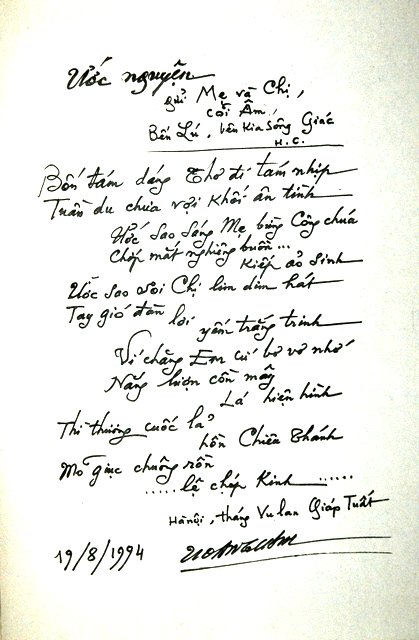 Ước nguyện
gửi Mẹ và Chị,
cõi Âm,
Bến Lú, bên kia Sông Giác
H.C.
Bốn tám dáng Thơ đi tám nhịp
Tuần du chưa vợi khối ân tình
Ước sao sóng Mẹ bừng Công chúa
Chớp mắt nghiêng buồn...
Kiếp ảo sinh
Ước sao soi Chị lim dim hát
Tay gió đàn lơi
yếm trắng trinh
Ví chăng Em cứ bơ vơ nhớ
Nắng lượn cồn mây
Lá hiện hình
Thi thương cuốc lả
hồn Chiêu Thánh
Mõ giục chuông rền
..... lệ chép Kinh ......
Hà nội, tháng Vu lan Giáp Tuất
19/8/1994